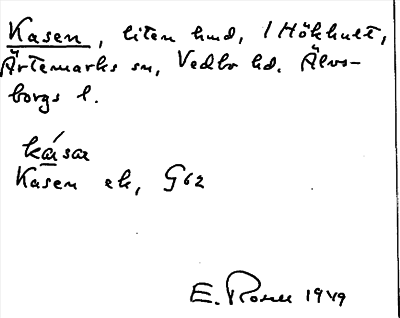 Kasen, liten lund, 1 Hökhult,
Ärtemarks sn, Vedbo hd. Älvs-
borgs l.
kásar
Kasen ek, G62
E. Rosell 1949